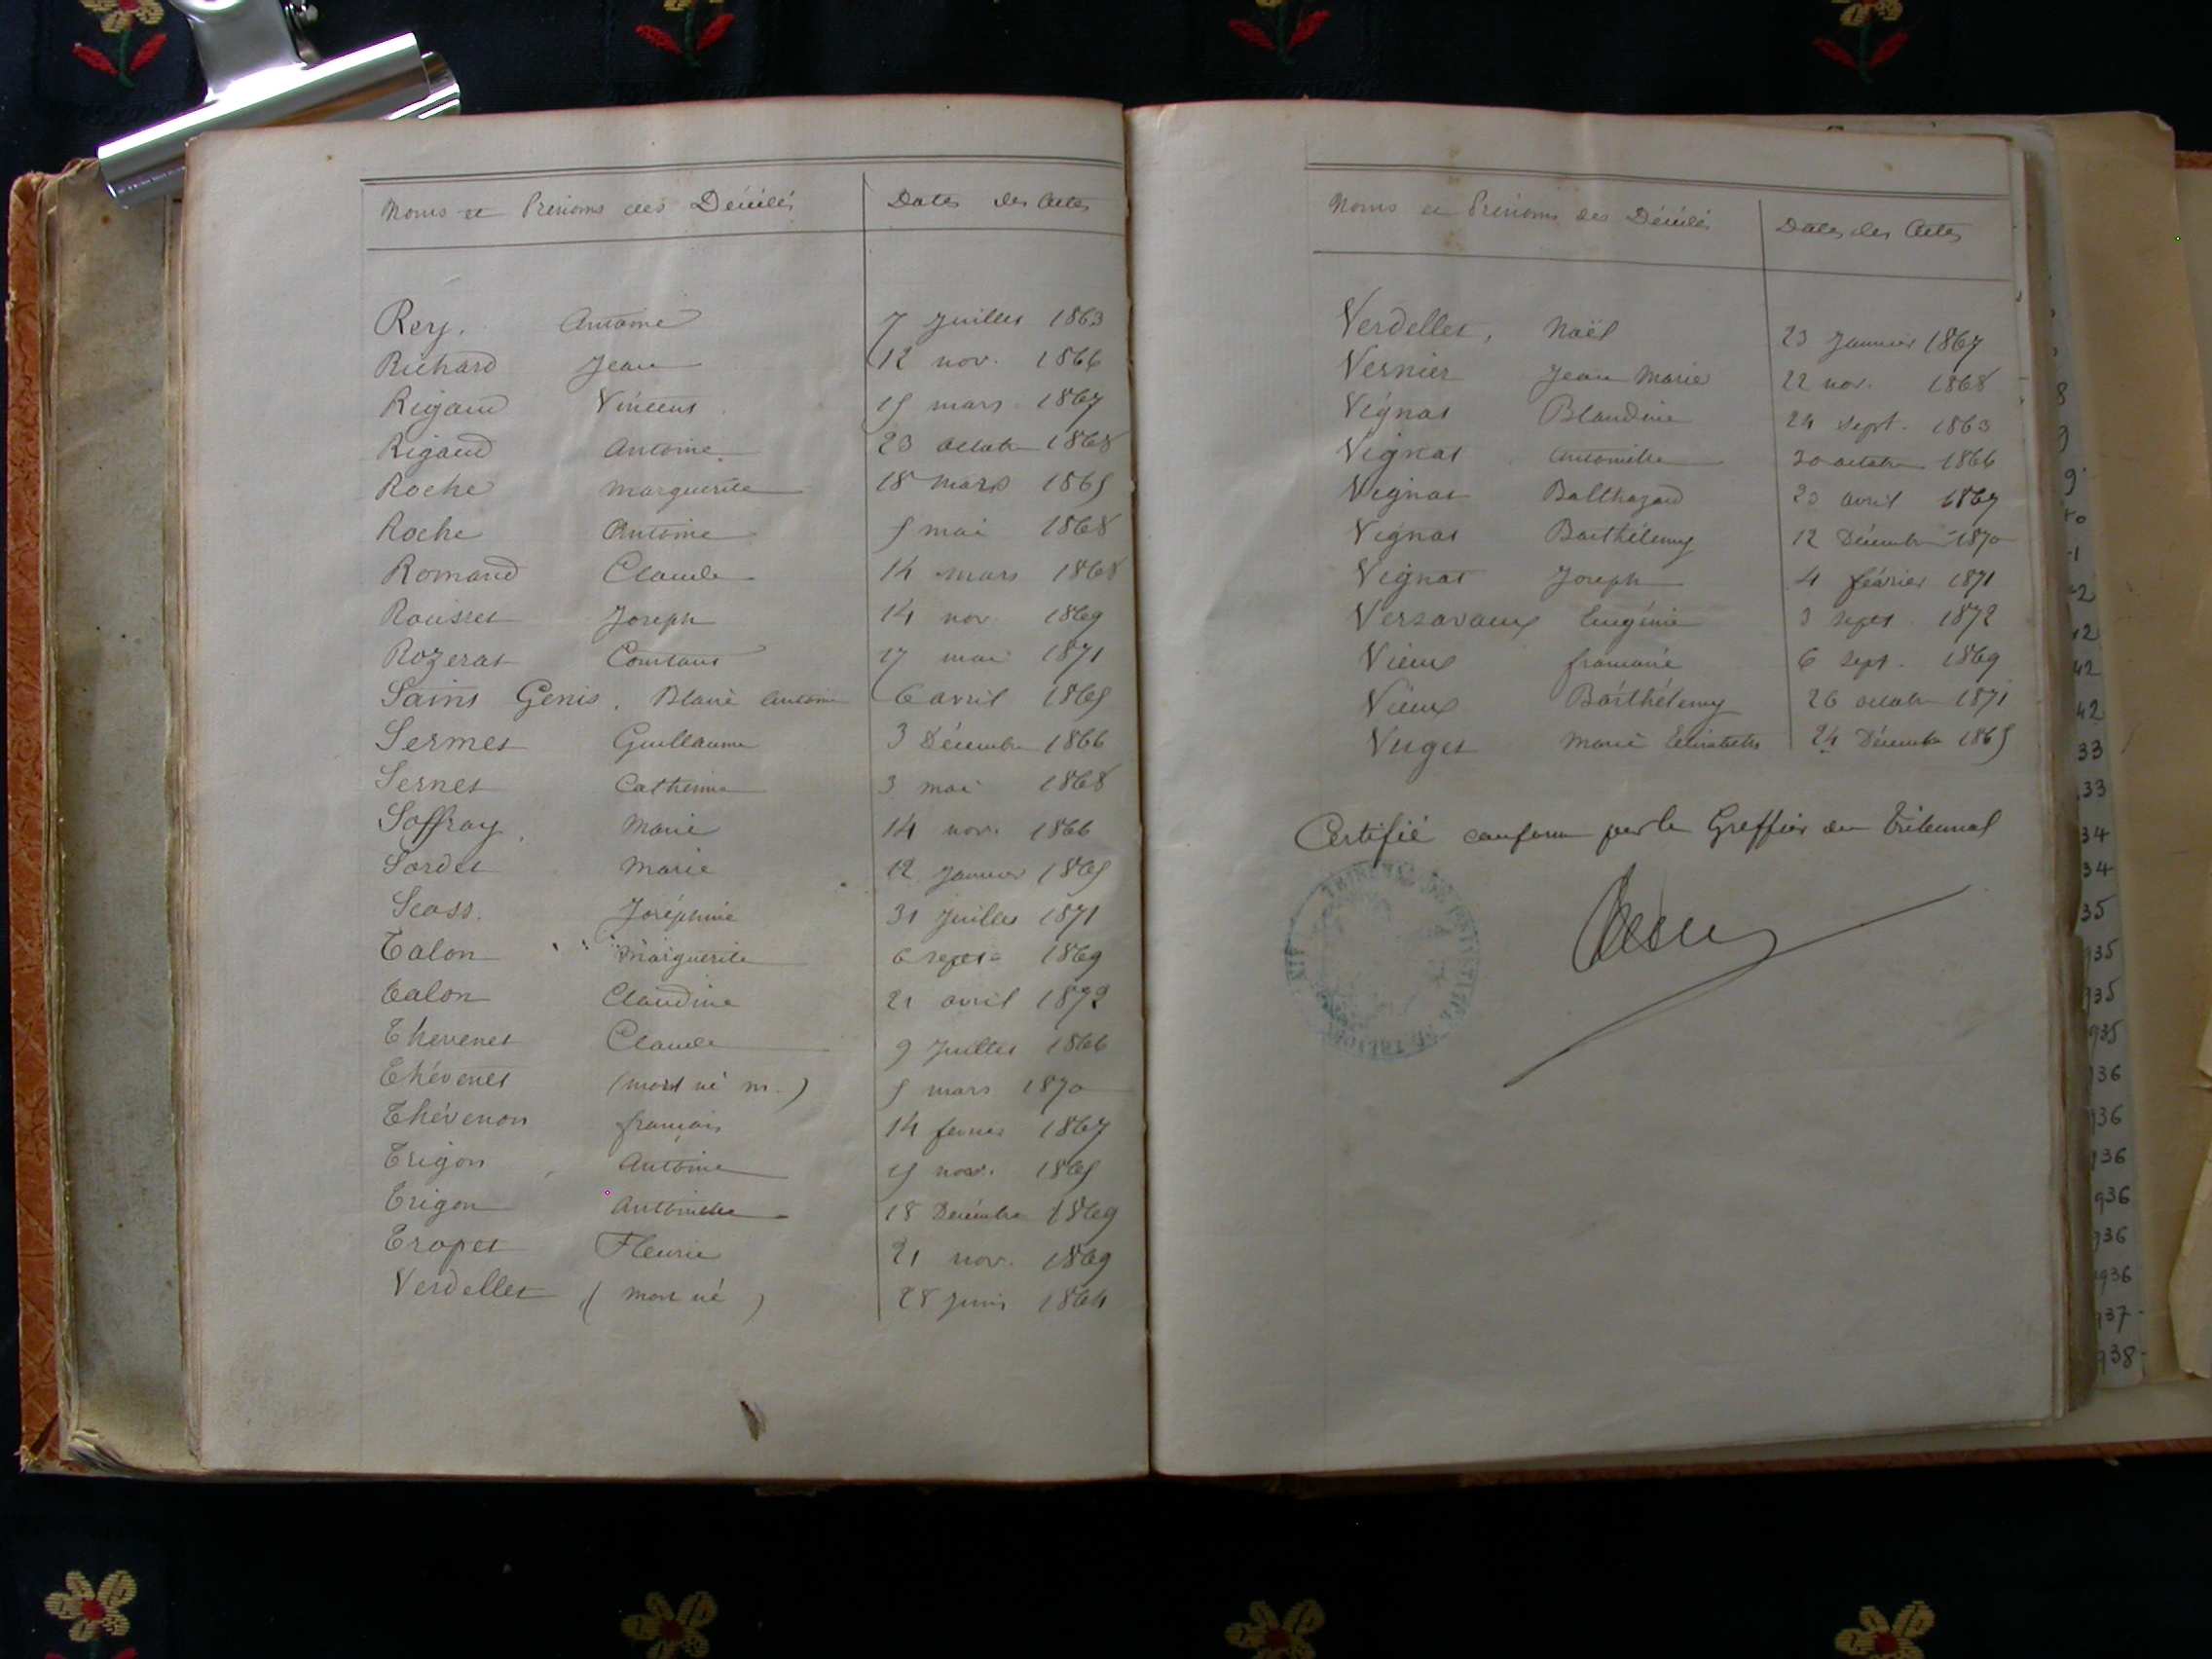 Noms et Prénoms des Décédés Dates des Actes
Rey. Antoine 7 Juillet 1863
Richard Jean 12 nov. 1866
Rigaud Vincent 15 mars 1867
Rigaud Antoine 23 octobre 1868
Roche Marguerite 18 mars 1865
Roche Antoine 5 mai 1868
Romand Claude 14 mars 1868
Rousset Joseph 14 nov. 1869
Rozerat Constant 17 mai 1871
Saint Genis, Blaise Antoine 6 avril 1865
Sermet Guillaume 3 Décembre 1866
Sernet Catherine 3 mai 1868
Soffray Marie 14 nov. 1866
Sordet Marie 12 Janvier 1865
Scoss. Joséphine 31 Juillet 1871
Talon Marguerite 6 sept. 1869
Talon Claudine 21 avril 1872
Thevenet Claude 9 Juillet 1866
Thévenet (mort né m.) 5 mars 1870
Thévenon françois 14 fevrier 1867
Trigon Antoine 15 nov. 1865
Trigon Antoinette 18 Décembre 1869
Tropet Fleurie 21 nov. 1869
Verdellet (mort né) 28 Juin 1864
Noms et Prénoms des Décédés Dates des Actes
Verdellet, Noël 23 Janvier 1867
Vernier Jean Marie 22 nov. 1868
Vignat Blandine 24 sept. 1863
Vignat Antoinette 30 octobre 1866
Vignat Balthazard 23 avril 1867
Vignat Barthélemy 12 Décembre 1870
Vignat Joseph 4 février 1871
Versavaux Eugénie 3 sept. 1872
Vieux 6 sept. 1869
Vieux Barthélemy 26 octobre 1871
Vuget Marie Elisabeth 24 Décembre 1865
Certifié conforme par le Greffier du Tribunal
8
9
9
40
42
42
42
33
33
34
34
35
935
935
935
936
936
936
936
936
936
937
938